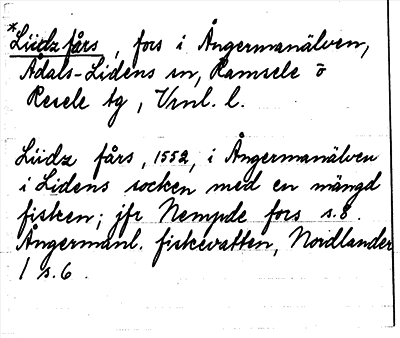 *Liidz fårs, fors i Ångermanälven,
Ådals-Lidens sn, Ramsele o
Resele tg, Vrnl. l.
Liidz fårs, 1552, i Ångermanälven
i Lidens socken med en mängd
fisken; jfr Nempde fors s.8.
Ångermanl. fiskevatten, Nordlander
1 s.6.